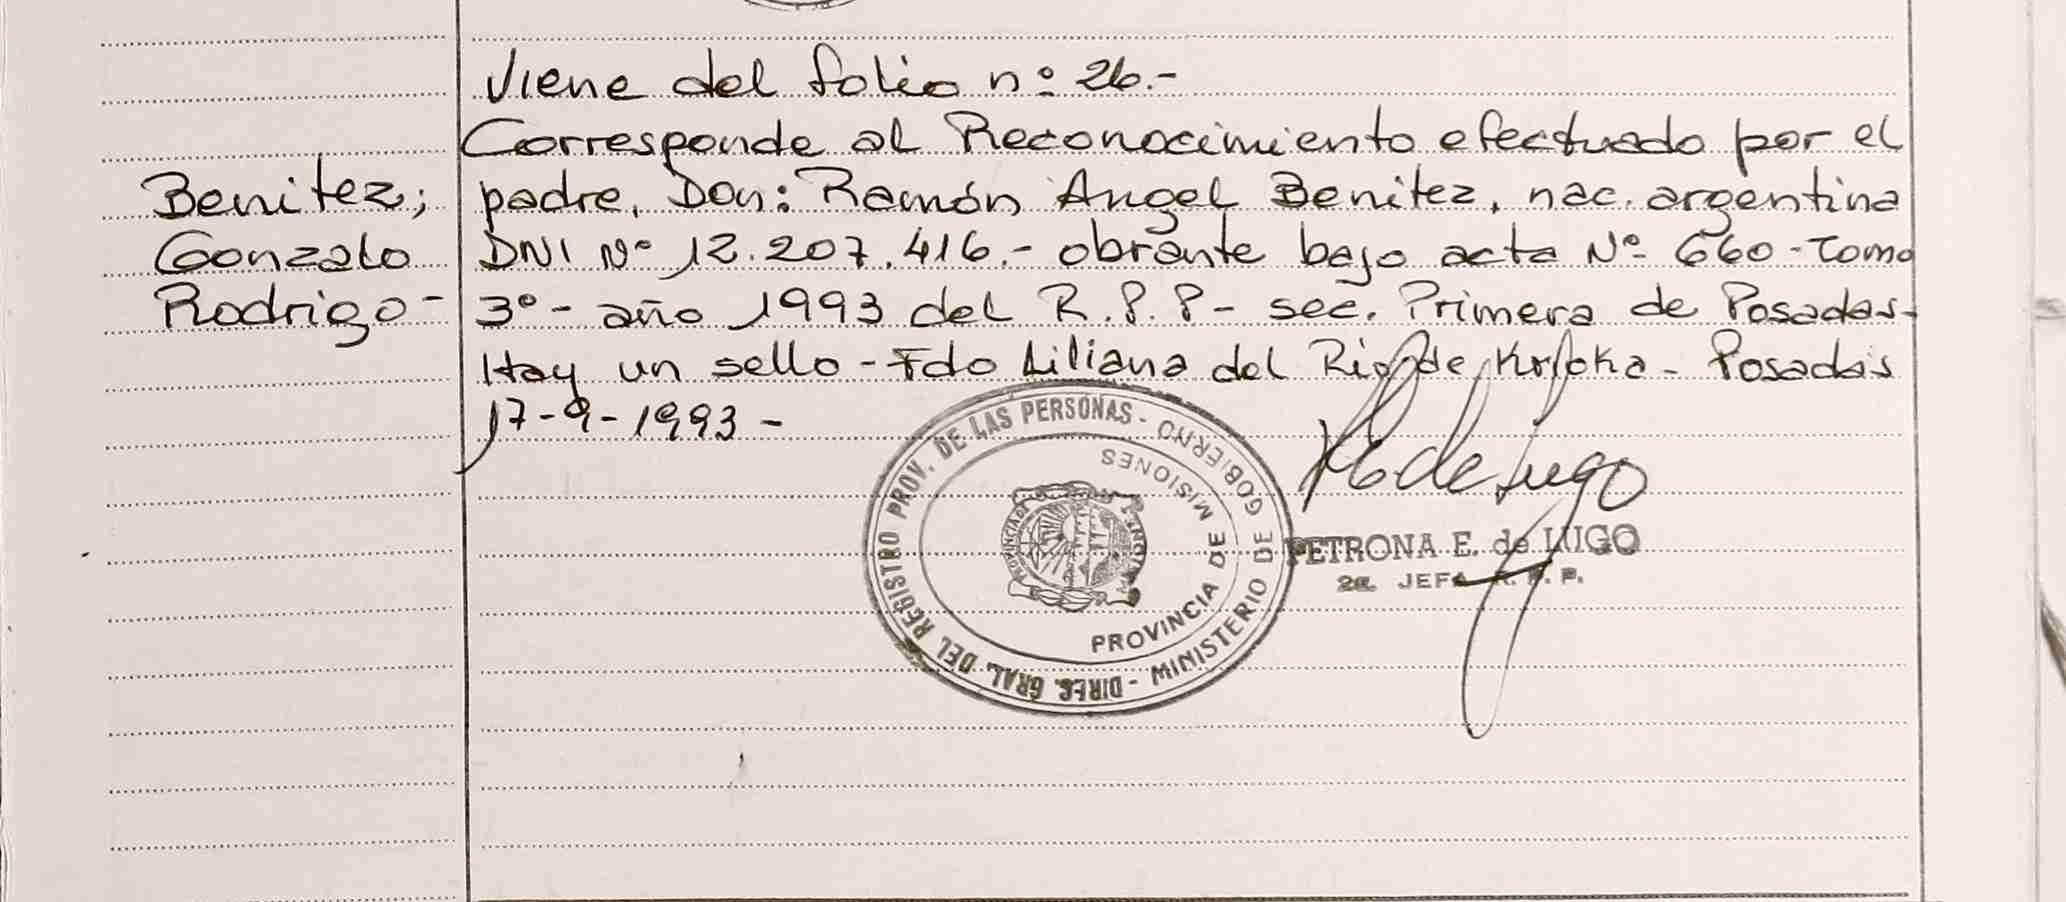 Viene del folio nº 26.-
Corresponde al Reconocimiento efectuado por el
Benitez;
padre, Don: Ramón Angel Benitez, nac. argentina
Gonzalo
DNI Nº 12.207.416.- obrante bajo acta Nº 660 - Tomo
Rodrigo -
3º - año 1993 del R.P.P - sec. Primera de Posadas.
Hay un sello - Fdo Liliana del Rio de - Posadas
17-9-1993 -
DIREC. GRAL. DEL REGISTRO PROV. DE LAS PERSONAS -
MINISTERIO DE GOBIERNO
PROVINCIA DE MISIONES
PETRONA E. de LUGO
2a. JEFA R. P. P.